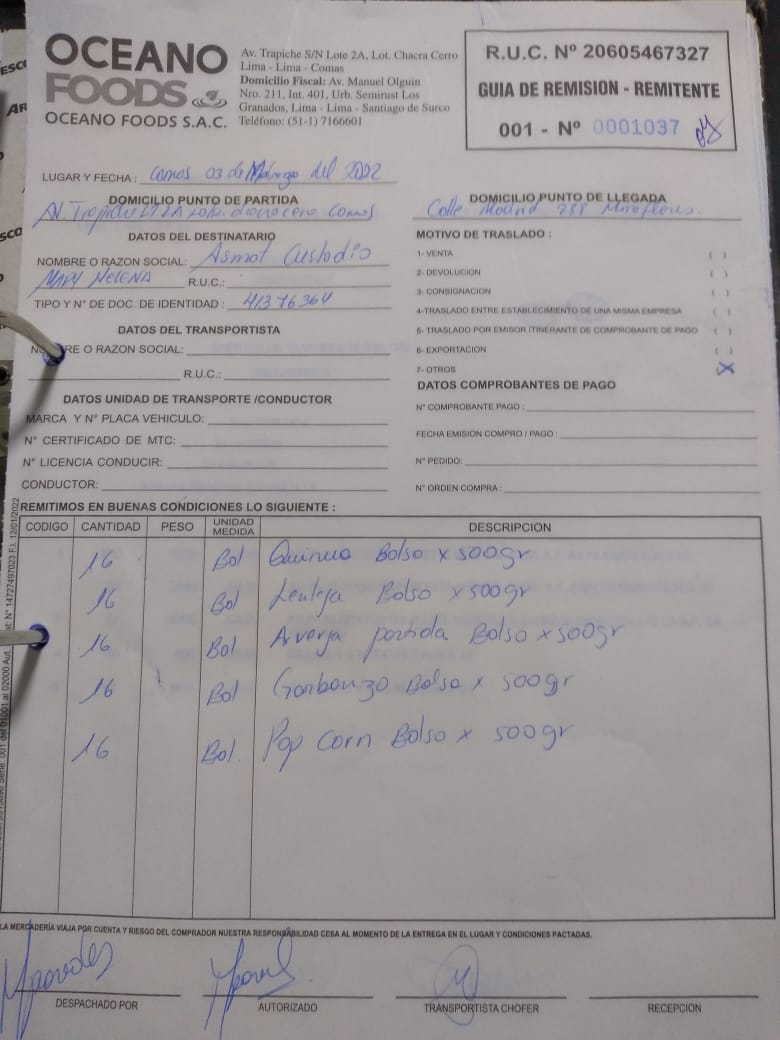 OCEANO
FOODS
OCEANO FOODS S.A.C.
Av. Trapiche S/N Lote 2A, Lot. Chacra Cerro
Lima - Lima - Comas
Domicilio Fiscal: Av. Manuel Olguin
Nro. 211, Int. 401, Urb. Semirust Los
Granados, Lima - Lima - Santiago de Surco
Teléfono: (51-1) 7166601
R.U.C. Nº 20605467327
GUIA DE REMISION - REMITENTE
001 - Nº 0001037
LUGAR Y FECHA : Comas 03 de Marzo del 2022
DOMICILIO PUNTO DE PARTIDA
Av Trapiche Comas
DATOS DEL DESTINATARIO
NOMBRE O RAZON SOCIAL: Asmat Custodio
Mary Helena R.U.C.:
TIPO Y N° DE DOC. DE IDENTIDAD : 41376364
DATOS DEL TRANSPORTISTA
RE O RAZON SOCIAL:
R.U.C.:
DATOS UNIDAD DE TRANSPORTE /CONDUCTOR
MARCA Y N° PLACA VEHICULO:
N° CERTIFICADO DE MTC:
N° LICENCIA CONDUCIR:
CONDUCTOR:
DOMICILIO PUNTO DE LLEGADA
Calle Madrid 288 Miraflores.
MOTIVO DE TRASLADO :
1- VENTA ( )
2- DEVOLUCION ( )
3- CONSIGNACION ( )
4-TRASLADO ENTRE ESTABLECIMIENTO DE UNA MISMA EMPRESA ( )
5- TRASLADO POR EMISOR ITINERANTE DE COMPROBANTE DE PAGO ( )
6- EXPORTACION ( )
7- OTROS X
DATOS COMPROBANTES DE PAGO
N° COMPROBANTE PAGO :
FECHA EMISION COMPRO / PAGO :
N° PEDIDO:
N° ORDEN COMPRA :
REMITIMOS EN BUENAS CONDICIONES LO SIGUIENTE :
CODIGO CANTIDAD PESO UNIDAD MEDIDA DESCRIPCION
16 Bol Quinua Bolsa x 500gr
16 Bol Lenteja Bolsa x 500gr
16 Bol Arverja partida Bolsa x 500gr
16 Bol Garbanzo Bolsa x 500gr
16 Bol. Pop Corn Bolsa x 500gr
LA MERCADERÍA VIAJA POR CUENTA Y RIESGO DEL COMPRADOR NUESTRA RESPONSABILIDAD CESA AL MOMENTO DE LA ENTREGA EN EL LUGAR Y CONDICIONES PACTADAS.
DESPACHADO POR
AUTORIZADO
TRANSPORTISTA CHOFER
RECEPCION